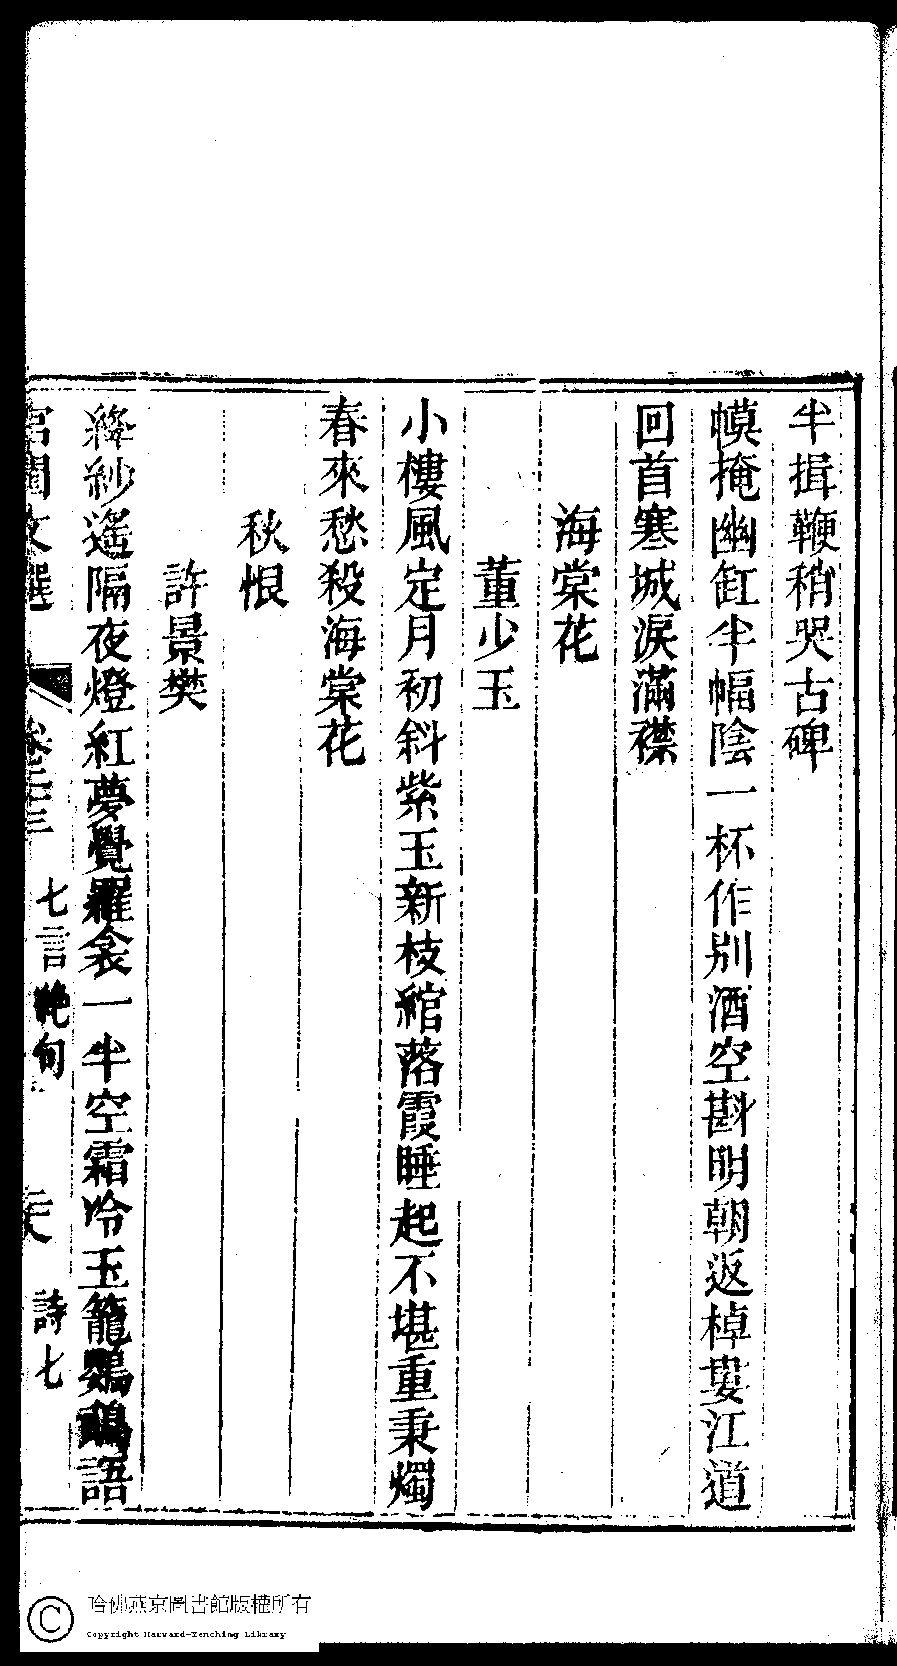 半揖鞭稍哭古碑
幙掩幽缸半幅陰一杯作別酒空斟明朝返棹婁江道
回首寒城淚滿襟
海棠花
董少玉
小樓風定月初斜紫玉新枝綰落霞睡起不堪重秉燭
春來愁殺海棠花
秋恨
許景樊
絳紗遙隔夜燈紅夢覺羅衾一半空霜冷玉籠鸚鵡語
宮閨文選 卷二十三 七言絶句 詩七
哈佛燕京圖書館版權所有
Copyright Harvard-Yenching Library